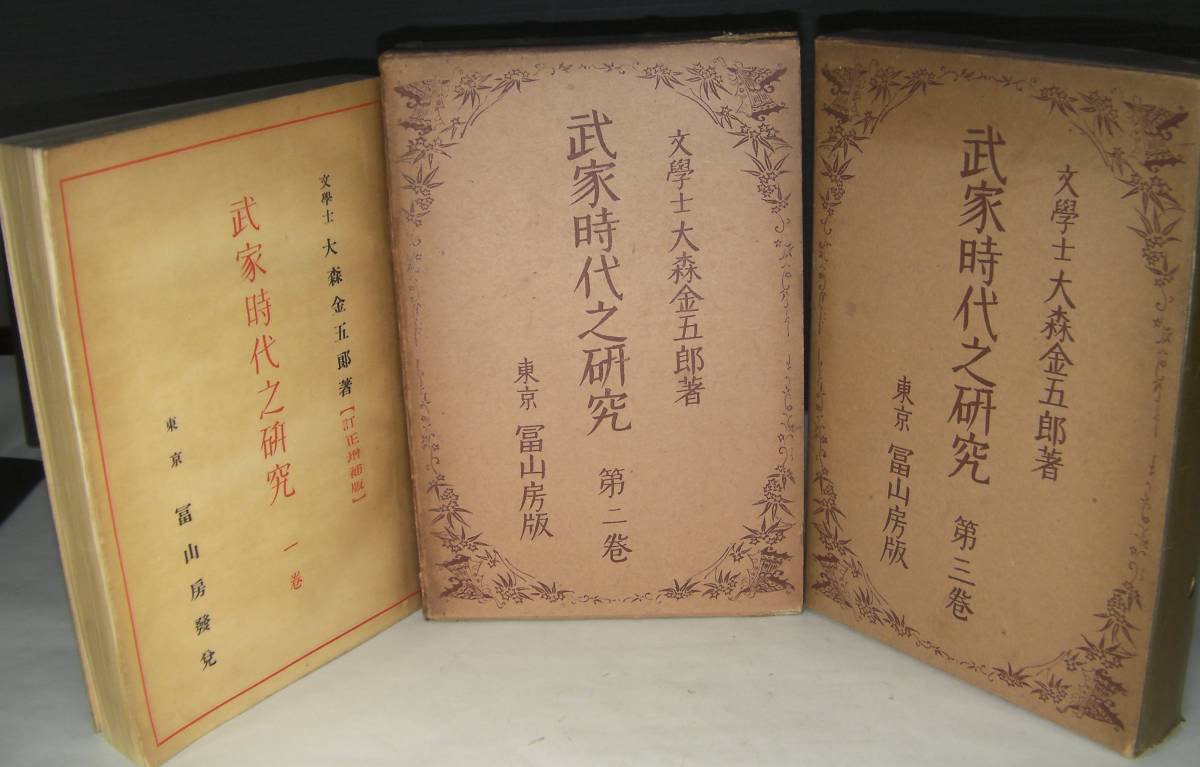 文學士 大森金五郎著【訂正增補版】
武家時代之研究 一卷
東京 冨山房發兌
文學士 大森金五郎著
武家時代之研究 第二卷
東京 冨山房版
文學士 大森金五郎著
武家時代之研究 第三卷
東京 冨山房版